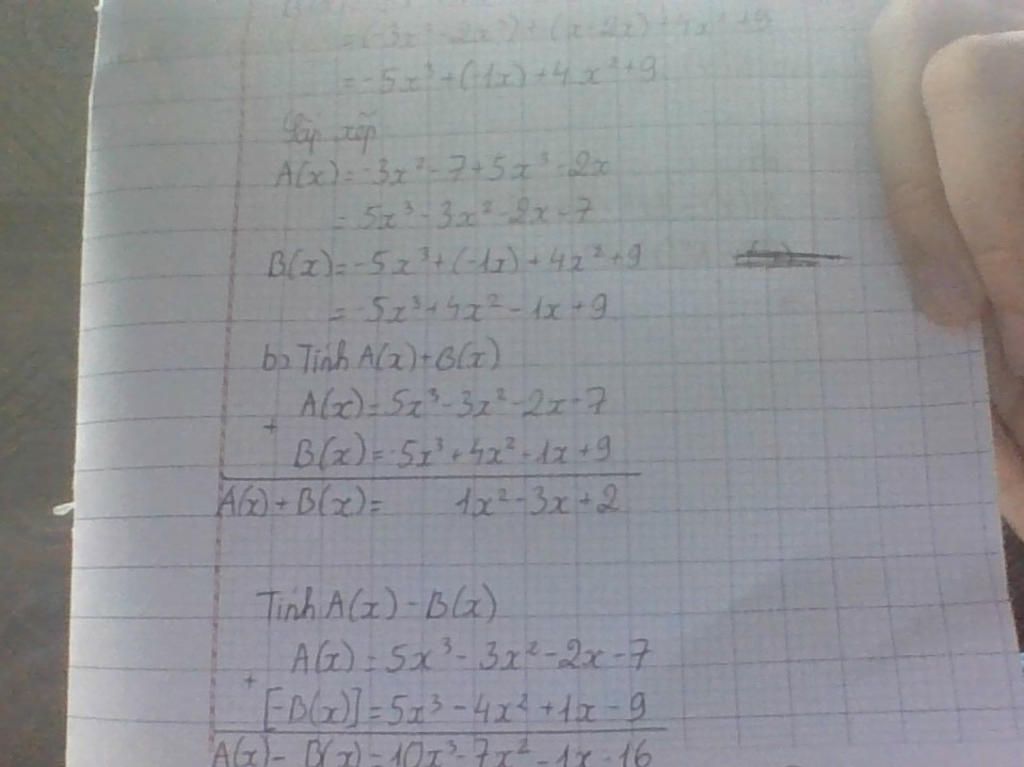 = (-3x³-2x³) + (x-2x) + 4x²+9
= -5x³+(-1x)+4x²+9
Sắp xếp
A(x)=-3x²-7+5x³-2x
= 5x³-3x²-2x-7
B(x)=-5x³+(-1x)+4x²+9
= -5x³+4x²-1x+9
b, Tính A(x)+B(x)
A(x)=5x³-3x²-2x-7
+
B(x)=-5x³+4x²-1x+9
A(x)+B(x)= 1x²-3x+2
Tính A(x)-B(x)
A(x)=5x³-3x²-2x-7
+
[-B(x)]=5x³-4x²+1x-9
A(x)-B(x)=10x³-7x²-1x-16